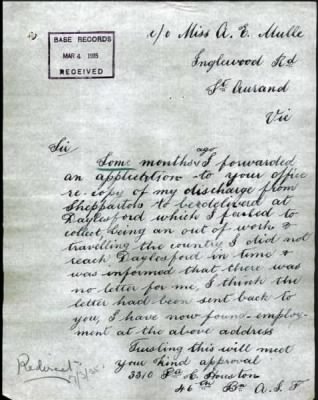 c/o Miss A. E. Mulle
Inglewood Rd
St Arnaud
Vic
BASE RECORDS
MAR 4 1935
RECEIVED
Sir
Some months ago I forwarded
an application to your office
re-copy of my discharge from
Shepparton to be delivered at
Daylesford which I failed to
collect, being an out of work &
travelling the country I did not
reach Daylesford in time &
was informed that there was
no letter for me, I think the
letter had been sent back to
you, I have now found employ-
ment at the above address
Trusting this will meet
your kind approval
3310 Houston
46th Bn A. I. F